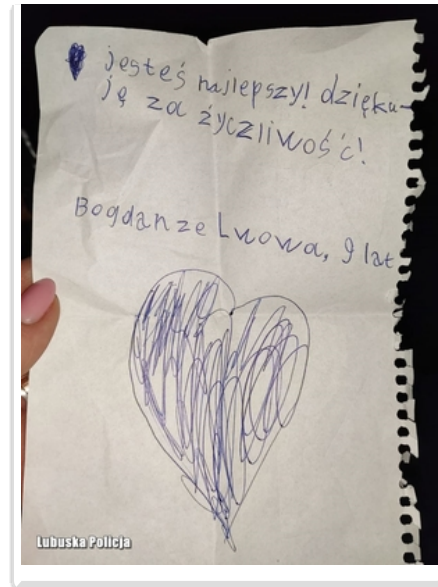 jesteś najlepszy! dzięku-
ję za życzliwość!
Bogdan ze Lwowa, 9 lat
Lubuska Policja